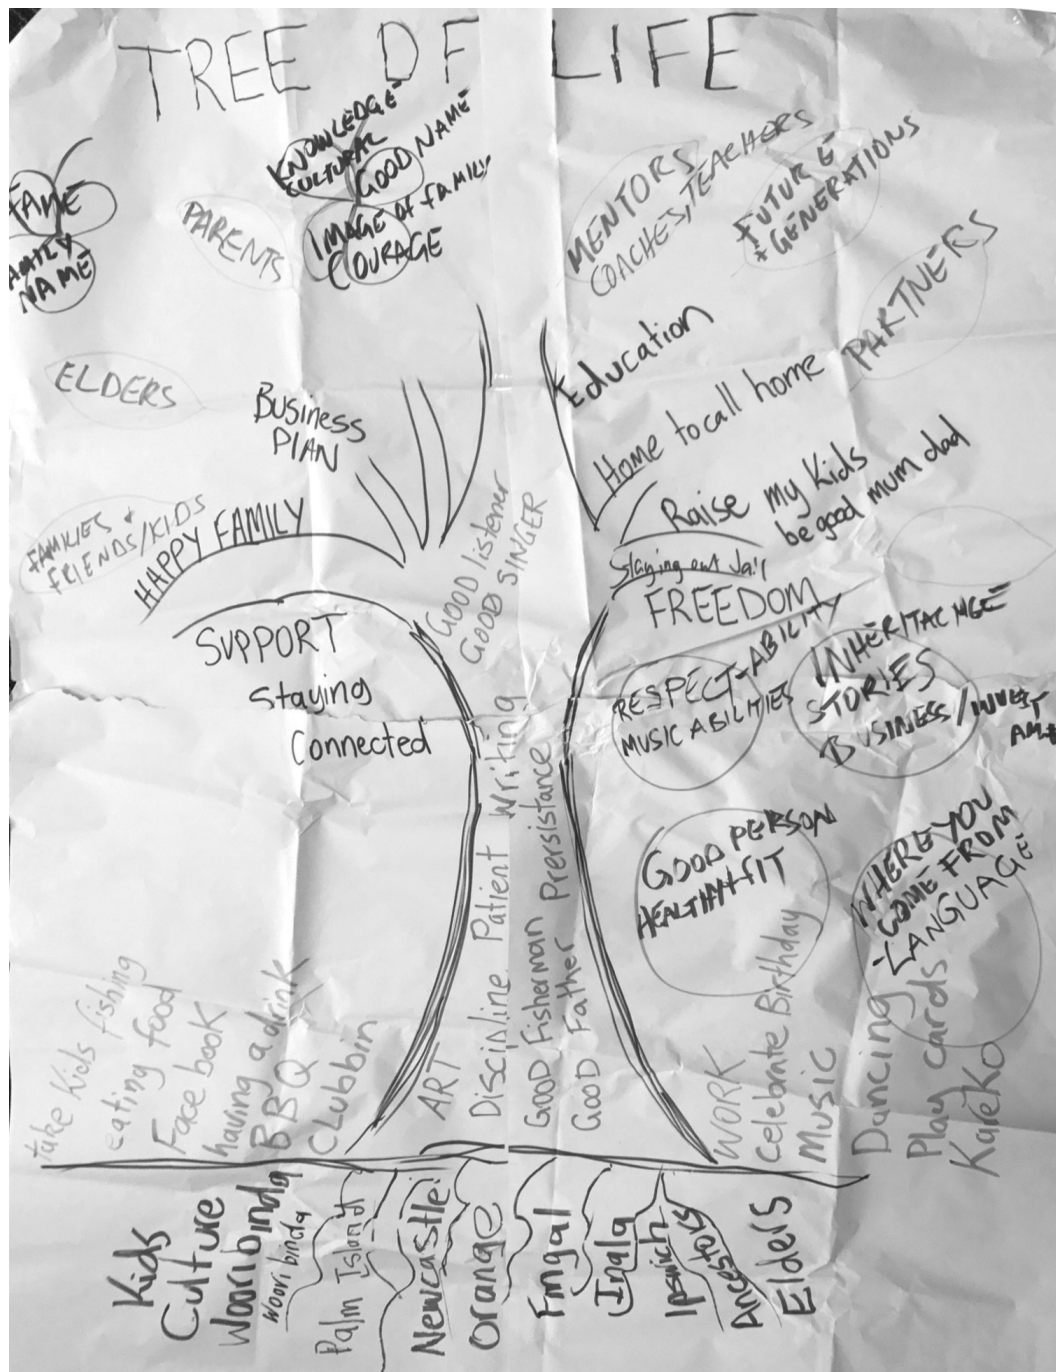 TREE OF LIFE
KNOWLEDGE
CULTURAL
GOOD NAME
IMAGE OF FAMILY
COURAGE
FAME
FAMILY
NAME
PARENTS
MENTORS
COACHES, TEACHERS
FUTURE
+ GENERATIONS
PARTNERS
ELDERS
Business
PLAN
Education
Home to call home
FAMILIES +
FRIENDS/KIDS
HAPPY FAMILY
Raise my Kids
be good mum dad
Staying out Jail
FREEDOM
SUPPORT
Staying
Connected
GOOD listener
GOOD SINGER
RESPECT-ABILITY
MUSIC ABILITIES
INHERITACNGE
STORIES
BUSINESS/
GOOD PERSON
HEALTHY+FIT
WHERE YOU
COME FROM
-LANGUAGE
take Kids fishing
eating food
Face book
having a drink
BBQ
Clubbin
ART
Discipline Patient Writing
GOOD Fisherman Prersistance
GOOD Father
WORK
Celebrate Birthday
Music
Dancing
Play cards
KareKo
Kids
Culture
Wooribinda
Wooribinda
Palm Island
Newcastle
Orange
Fingal
Inala
Ipswich
Ancestors
Elders